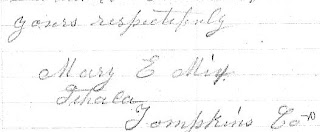 yours respectifuly
Mary E Mix
Ithaca
Tompkins Co